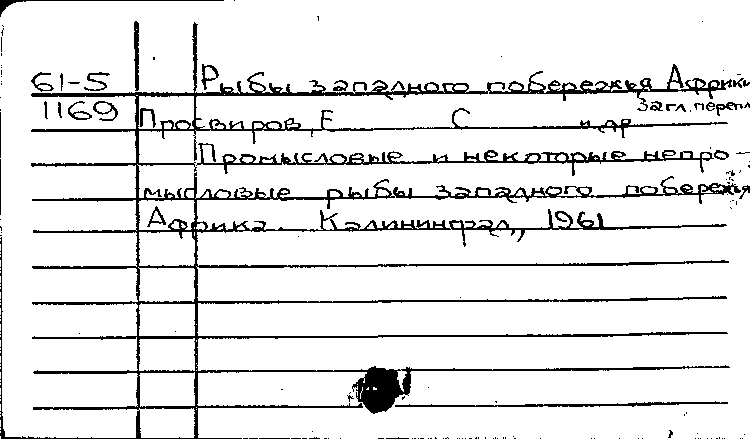 61-5 Рыбы западного побережья Африки
1169 Загл. перепл
Просвиров, Е С и др
Промысловые и некоторые непро-
мысловые рыбы западного побережья
Африка. Калининград,, 1961